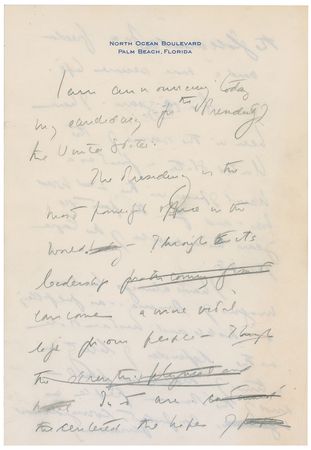 NORTH OCEAN BOULEVARD
PALM BEACH, FLORIDA
I am announcing today
my candidacy for the Presidency
the United States.
The Presidency is the
most powerful office in the
world. Through its
leadership
can come a more vital
life for our people — Through
the strength
In it are
the centered the hopes of